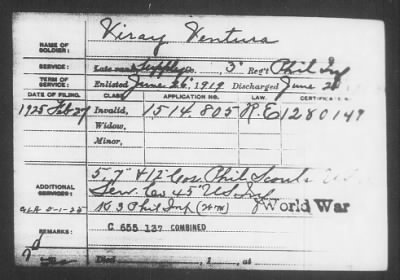 NAME OF SOLDIER: Viray Ventura
SERVICE: Late rank Supply Co., 3" Reg't Phil Inf
TERM OF SERVICE: Enlisted June 26, 1919 Discharged June 2
DATE OF FILING. CLASS. APPLICATION NO. LAW. CERTIFICATE
1925 Feb 27 Invalid, 1514.805 R.E 1280149
Widow,
Minor,
ADDITIONAL SERVICES: 5, 7 & 12 Cos. Phil Scouts
Serv. Co 45" US. Inf
World War
GLA 5-1-25 Phil Inf
REMARKS: C 655 137 COMBINED
Died , 1 , at